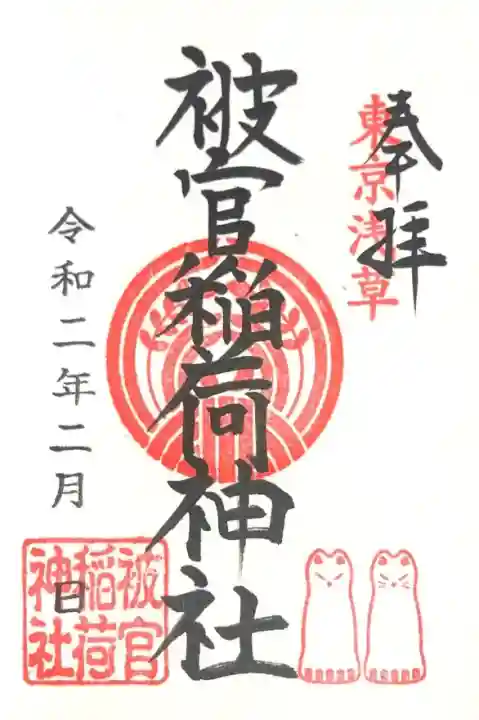 奉拝
東京浅草
被官稲荷神社
令和二年二月 日
被官
稲荷
神社